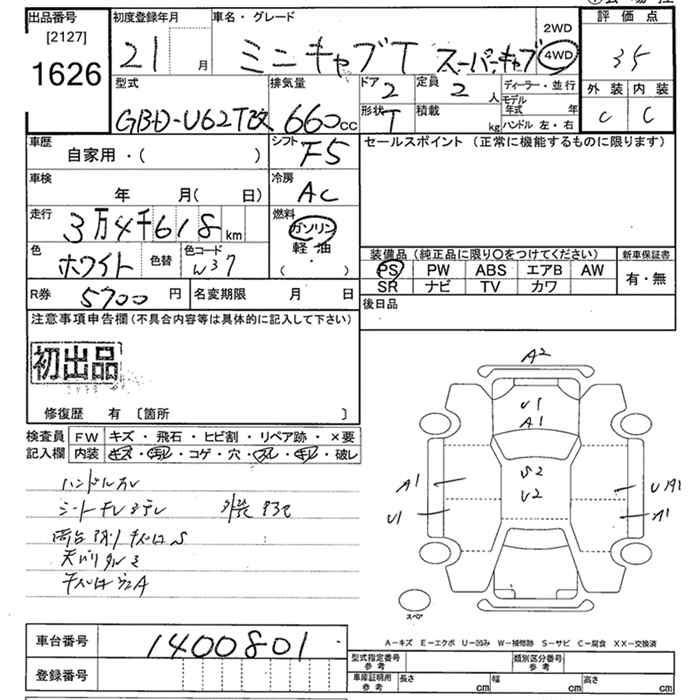 出品番号 初度登録年月 車名・グレード 評価点
[2127] 2WD
1626 21 月 ミニキャブT スーパーキャブ 4WD 35
型式 排気量 ドア 定員 ディーラー・並行 外装 内装
2 2 人 モデル年式 年 C C
GBD-U62T改 660cc 形状 T 積載 kg ハンドル 左・右
車歴 シフト セールスポイント (正常に機能するものに限ります)
自家用・( ) F5
車検 冷房
年 月( 日) AC
走行 燃料
3万4千618km ガソリン
色 色替 色コード 軽油 装備品 (純正品に限り○をつけてください) 新車保証書
ホワイト W37 ( ) PS PW ABS エアB AW 有・無
SR ナビ TV カワ
R券 5700円 名変期限 月 日 後日品
注意事項申告欄(不具合内容等は具体的に記入して下さい)
初出品
修復歴 有 〔箇所 〕
検査員 FW キズ・飛石・ヒビ割・リペア跡・×要
記入欄 内装 キズ・汚レ・コゲ・穴・スレ・キレ・破レ
ハンドルスレ
A2
U1
A1
S2
U2
A1
U1
UA1
A1
スペア
A-キズ E-エクボ U-凹み W-補修跡 S-サビ C-腐食 XX-交換済
車台番号 1400801
登録番号
型式指定番号 参考 類別区分番号 参考
車庫証明用 参考 長さ cm 幅 cm 高さ cm